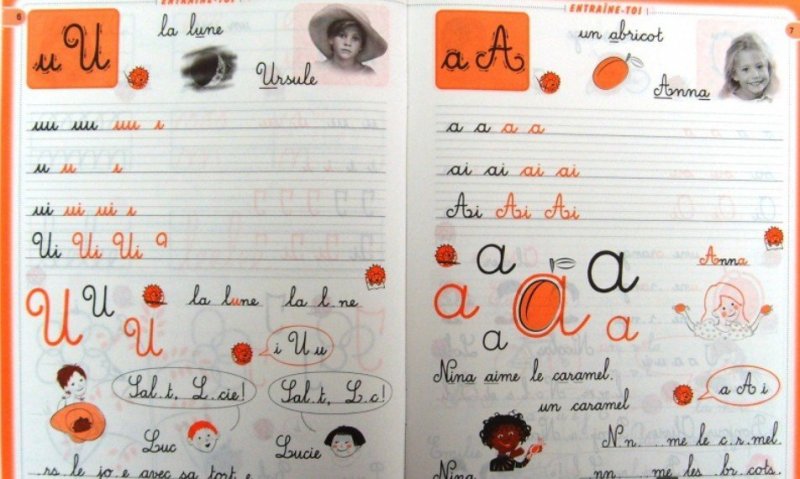 6
ENTRAÎNE-TOI
u U
la lune
Ursule
uu uu uu ı
u u ı
ui ui ui ı
Ui Ui Ui
U U U
la lune la l.ne
i U u
Sal.t, L.cie!
Sal.t, L.c!
Luc
Lucie
..rs.. le jo.e avec sa tort.e
ENTRAÎNE-TOI
7
a A
un abricot
Anna
a a a a
ai ai ai ai
Ai Ai Ai
a a a
Anna
a a
a
Nina aime le caramel.
a A i
un caramel
N.n. ..me le c.r.mel.
Nina .nn. ..me les .br.cots.